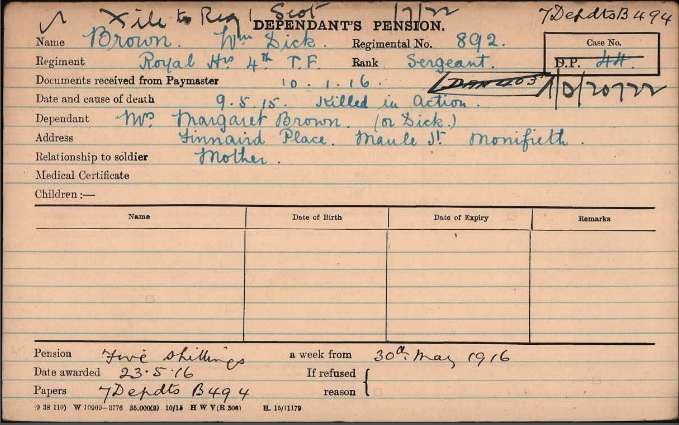 File to Reg 1 Scot 1/7/22
7 Depdts B494
DEPENDANT'S PENSION.
Name Brown. Wm Dick. Regimental No. 892.
Case No.
Regiment Royal Hrs 4th T.F. Rank Sergeant.
D.P. 44
Documents received from Paymaster 10.1.16.
1/D/20722
Date and cause of death 9.5.15. Killed in Action.
Dependant Mrs Margaret Brown. (or Dick.)
Address Finnaird Place. Maule St. Monifieth.
Relationship to soldier Mother.
Medical Certificate
Children :—
Name Date of Birth Date of Expiry Remarks
Pension Five shillings a week from 30th May 1916
Date awarded 23.5.16 If refused
Papers 7 Depdts B494 reason
(9 38 110) W 10909—3776 35,000(2) 10/15 H W V(R 306) H. 15/11179